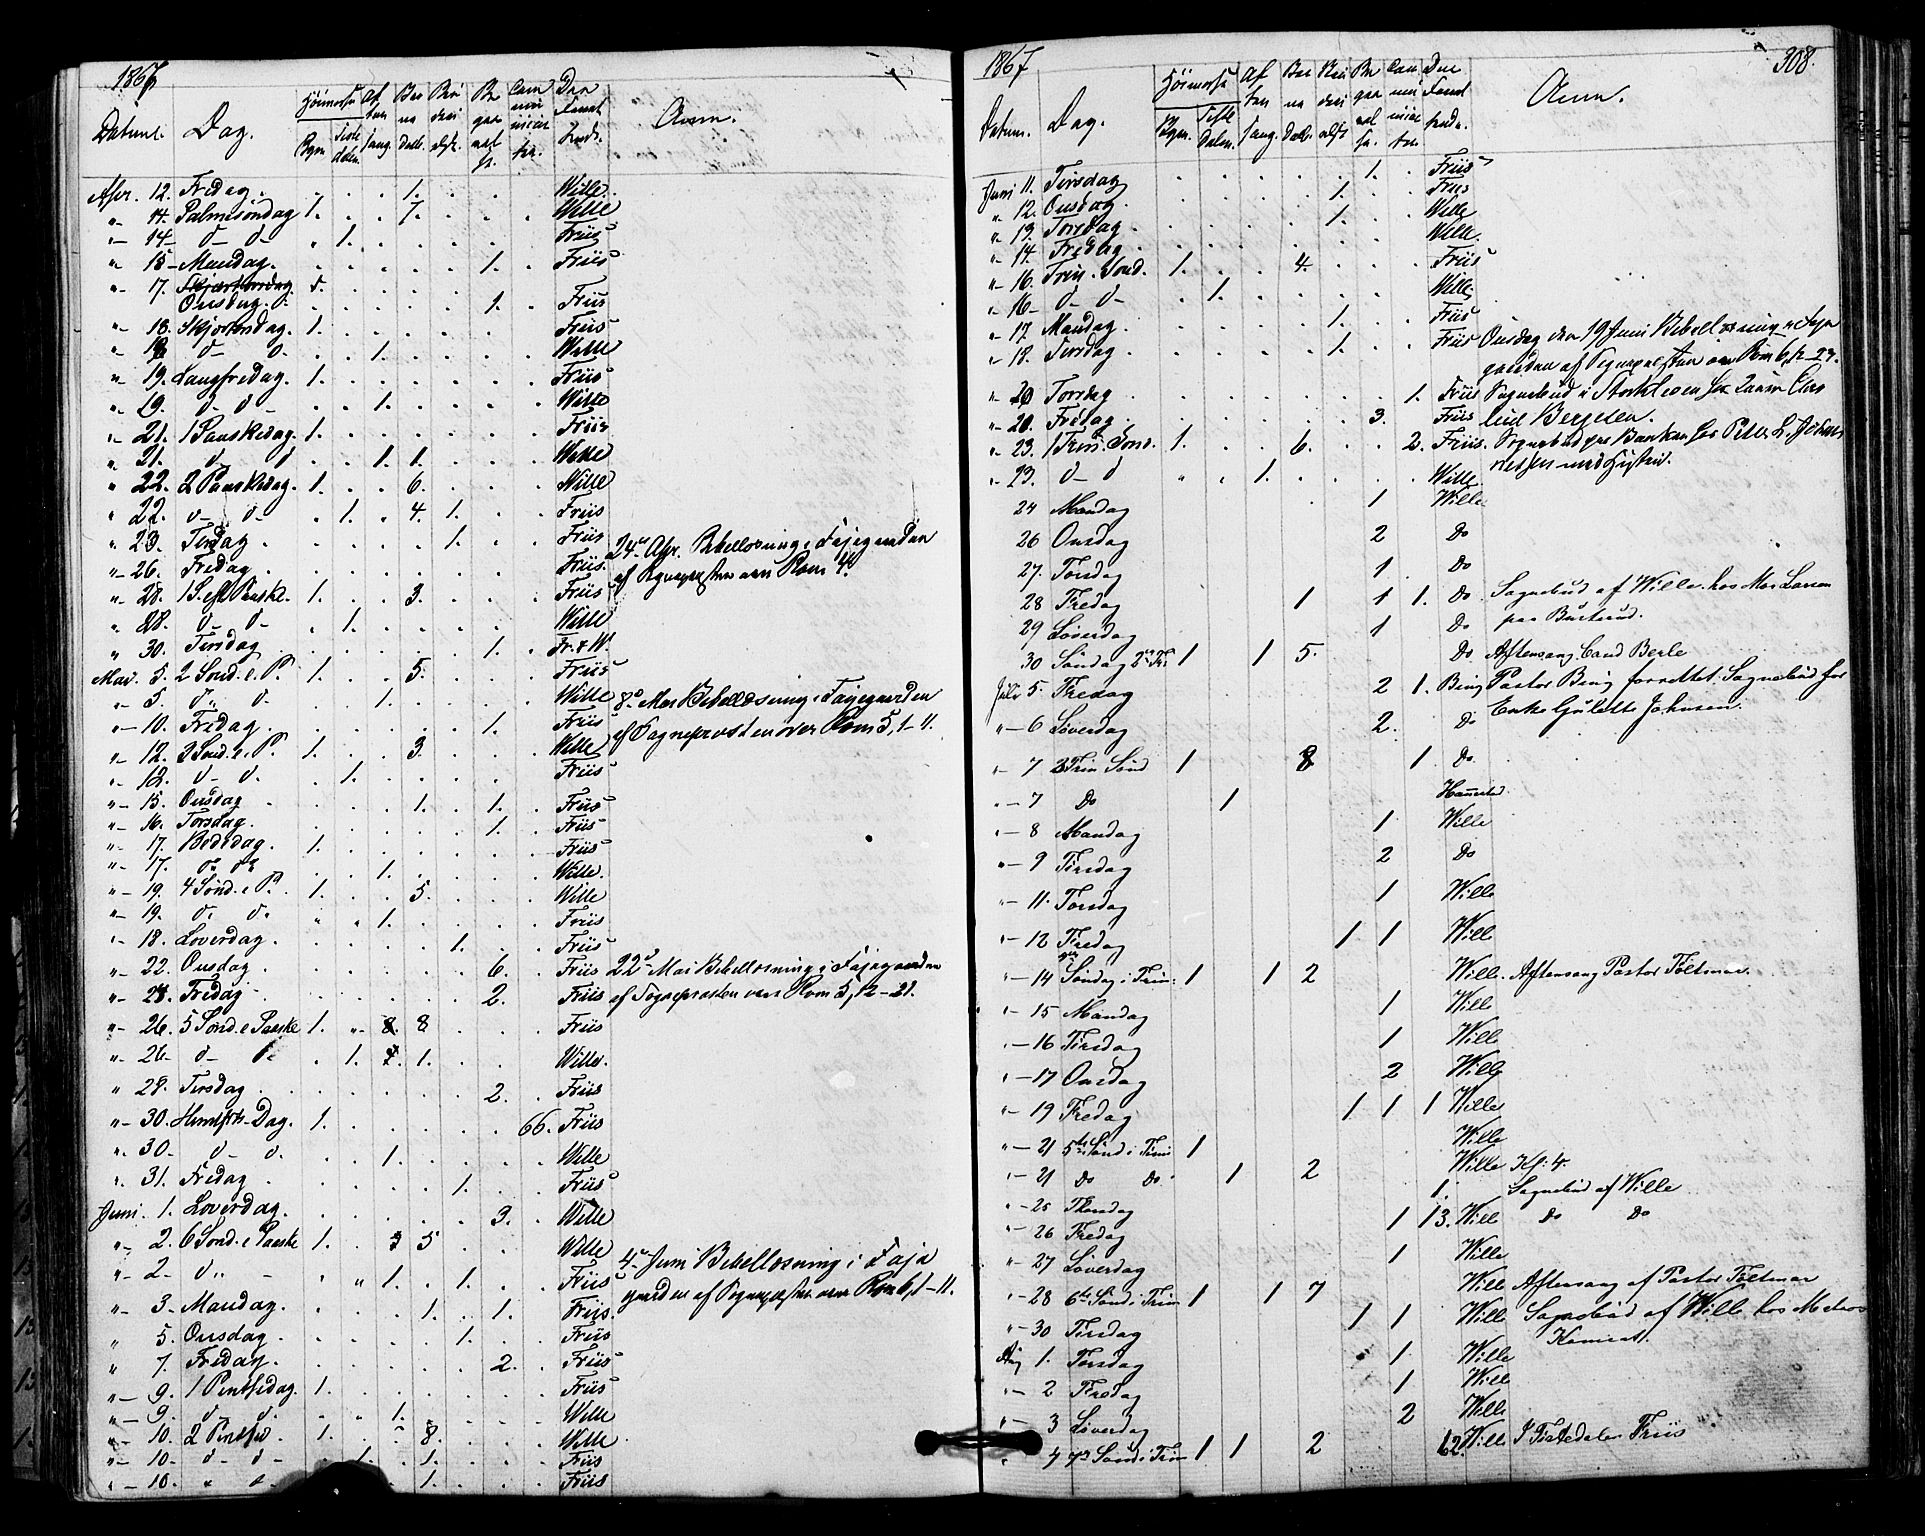 1867
Datum. Dag. Høimesse Bgm. Tiste dalen. Af ten sang. Bar ne daab. Bru devi elser. Be gra vel ser. Com mu nican ter. Den Forret tende. Anm.
Apr. 12. Fredag. 1. Wille
" 14. Palmesøndag 1. 7. Wille
" 14 - d - d - 1. Friis
" 15 - Mandag. 1. Friis
" 17. Onsdag. 1. Friis
" 18. Skjærtorsdag. 1. Friis
" 18 d - d. 1. Wille
" 19. Langfredag. 1. Friis
" 19. d - d - 1. Wille
" 21. 1 Paaskedag. 1. Friis
" 21. d d 1. 1. Wille
" 22. 2 Paaskedag. 1. 6. Wille
" 22. d - d - 1. 4. 1. Friis
" 23. Tirsdag. 1. Friis
24de Apr. Bibellæsning i Fajegaarden
" 26. Fredag. Friis
af Sognepræsten over Rom 4.
" 28. 1 S. eft. Paaske. 1. 3. Friis
" 28. d - d - 1. Wille
" 30. Tirsdag 1. Fr. & W.
Mai. 5. 2 Sønd. e. P. 1. 5. Friis
" 5. d " d. 1. Wille 8de Mai Bibellæsning i Fajegaarden
" 10. Fredag. 1. Friis
af Sogneprosten over Rom 5, 1-11.
" 12. 3 Sønd. e. P. 1. 3. Wille
" 12. d - d. 1. Friis
" 15. Onsdag 1. 1. Friis
" 16. Torsdag. 1. Friis
" 17. Bededag. 1. Friis
" 17. d. d. 1. Wille.
" 19. 4 Sønd. e P. 1. 5. Wille
" 19. d. d. 1. Friis
" 18. Loverdag. 1. Friis
" 22. Onsdag 6. Friis 22de Mai Bibellæsning i Fajegaarden
" 24. Fredag 2. Friis af Sogneprosten over Rom 5, 12-21.
" 26. 5 Sønd. e Paaske 1. 8 Friis
" 26 - d - d. 1. 1. Wille.
" 28. Tirsdag. 2. Friis
" 30. Himlfrts-Dag. 1. 66. Friis
" 30 - d d. 1. Wille
" 31. Fredag 1. Friis
Juni. 1. Loverdag. 3. Wille
" 2. 6 Sønd. e Paaske 1. 5 Wille
4de Juni Bibellæsning i Faje
" 2 - d " - 1. 1. Friis
gaarden af Sogneprosten over Rom 6, 1-11.
" 3. Mandag. 1. 1. Friis.
" 5. Onsdag. 1. Friis
" 7. Fredag. 2. Friis
" 9. 1 Pintsedag. 1. Friis
" 9. d. d. 1. Wille
" 10. 2 Pintsed. 1. 8. Wille
" 10 - d - d - 1. 1. Friis
" 10. " d 1. Friis
1867 308.
Datum. Dag. Høimesse Bgm. Tiste Dalen. Af ten sang. Bar ne Daab. Bru devi elser. Be gra vel ser. Com mu nican ter. Den Forret tende. Anm.
Juni 11. Tirsdag 1. Friis
" 12. Onsdag. 1. Friis
" 13. Torsdag 1. Wille
" 14. Fredag Wille.
" 16. Trin. Sønd. 1. 4. Friis
" 16 - d - d - 1. Wille
" 17. Mandag. 1. Friis
" 18. Tirsdag 1. Friis Onsdag den 19 Juni Bibellæsning i Faje
gaarden af Sogneprosten over Rom 6, 12-23.
" 20 Torsdag 1. Friis Sognebud i
" 20. Fredag 3. Friis
" 23. 1 Trin. Sønd. 1. 6. 2. Friis. Sognebud paa Banken hos Peter L.
" 23. d - d 1. Wille
24 Mandag 1 Wille
26 Onsdag 2 Do
27. Torsdag 1. Do
28 Fredag 1 1 1. Do Sognebud af Wille hos Mar Larsen
29 Løverdag 1 Do
30 Søndag 2 Tr. 1 1 5. Do Aftensang Cand Berle
Juli 5. Fredag 2 1. Bing Pastor Bing forrettet Sognebud for
Enke Gulette Johnsen.
" 6 Løverdag 2. Do
" 7 3 Trin Sønd 1 8 1 Do
" 7 Do 1
" 8 Mandag 1 Wille
" 9 Tirsdag 2 Do
" 11. Torsdag 1 Wille
" 12 Fredag 1 1 Will
" 14 Søndag i Trin: 1 1 2 Will. Aftensang Pastor Foltmar.
" 15 Mandag 1 Will
" 16 Tirsdag 1 Will
" 17 Onsdag 2 Will
" 19 Fredag 1 1 1 Wille
" 21 5te Sønd i Trini 1 Wille
" 21 Do Do 1 2 Wille Kl: 4.
" 25 Thorsdag 1. Sognebud af Wille
" 26 Fredag 1 13. Will Do Do
" 27 Løverdag 1 Will
" 28 6te Sønd i Trin 1 1 7 Will Aftensang af Pastor Foltmar
" 30 Tirsdag 1 1 Will Sognebud af Wille hos
Aug 1. Torsdag 1 Will
" 2 Fredag 1 Will
" 3 Løverdag 2 Will
" 4 7de Sønd i Trin 1 1 2 62. Will I Tistedalen Friis